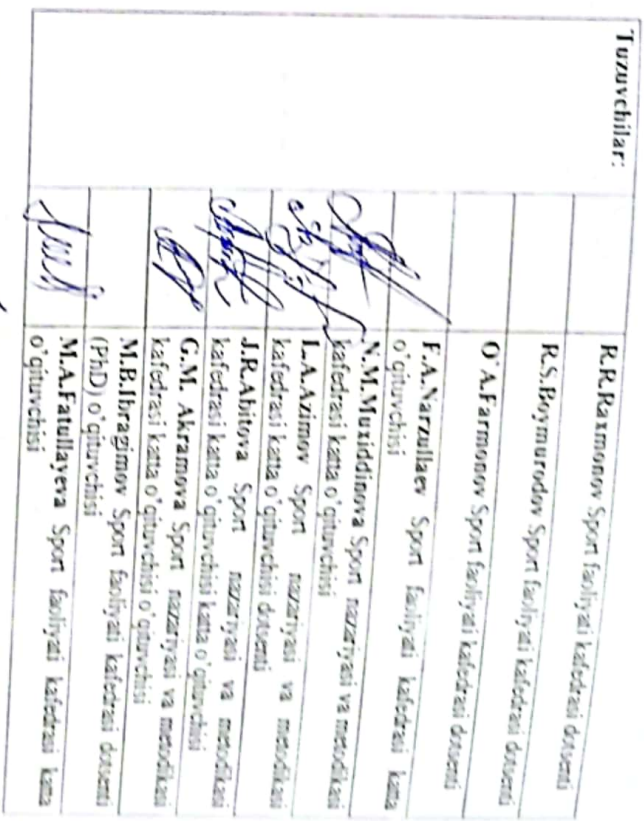 Tuzuvchilar:
R.R.Raxmonov Sport faoliyati kafedrasi dotsenti
R.S.Boymurodov Sport faoliyati kafedrasi dotsenti
O'A.Farmonov Sport faoliyati kafedrasi dotsenti
F.A.Narzullaev Sport faoliyati kafedrasi katta
o'qituvchisi
N.M.Muxiddinova Sport nazariyasi va metodikasi
kafedrasi katta o'qituvchisi
L.A.Azimov Sport nazariyasi va metodikasi
kafedrasi katta o'qituvchisi dotsenti
J.R.Abitova Sport nazariyasi va metodikasi
kafedrasi katta o'qituvchisi katta o'qituvchisi
G.M. Akramova Sport nazariyasi va metodikasi
kafedrasi katta o'qituvchisi o'qituvchisi
M.B.Ibragimov Sport faoliyati kafedrasi dotsenti
(PhD) o'qituvchisi
M.A.Fatullayeva Sport faoliyati kafedrasi katta
o'qituvchisi